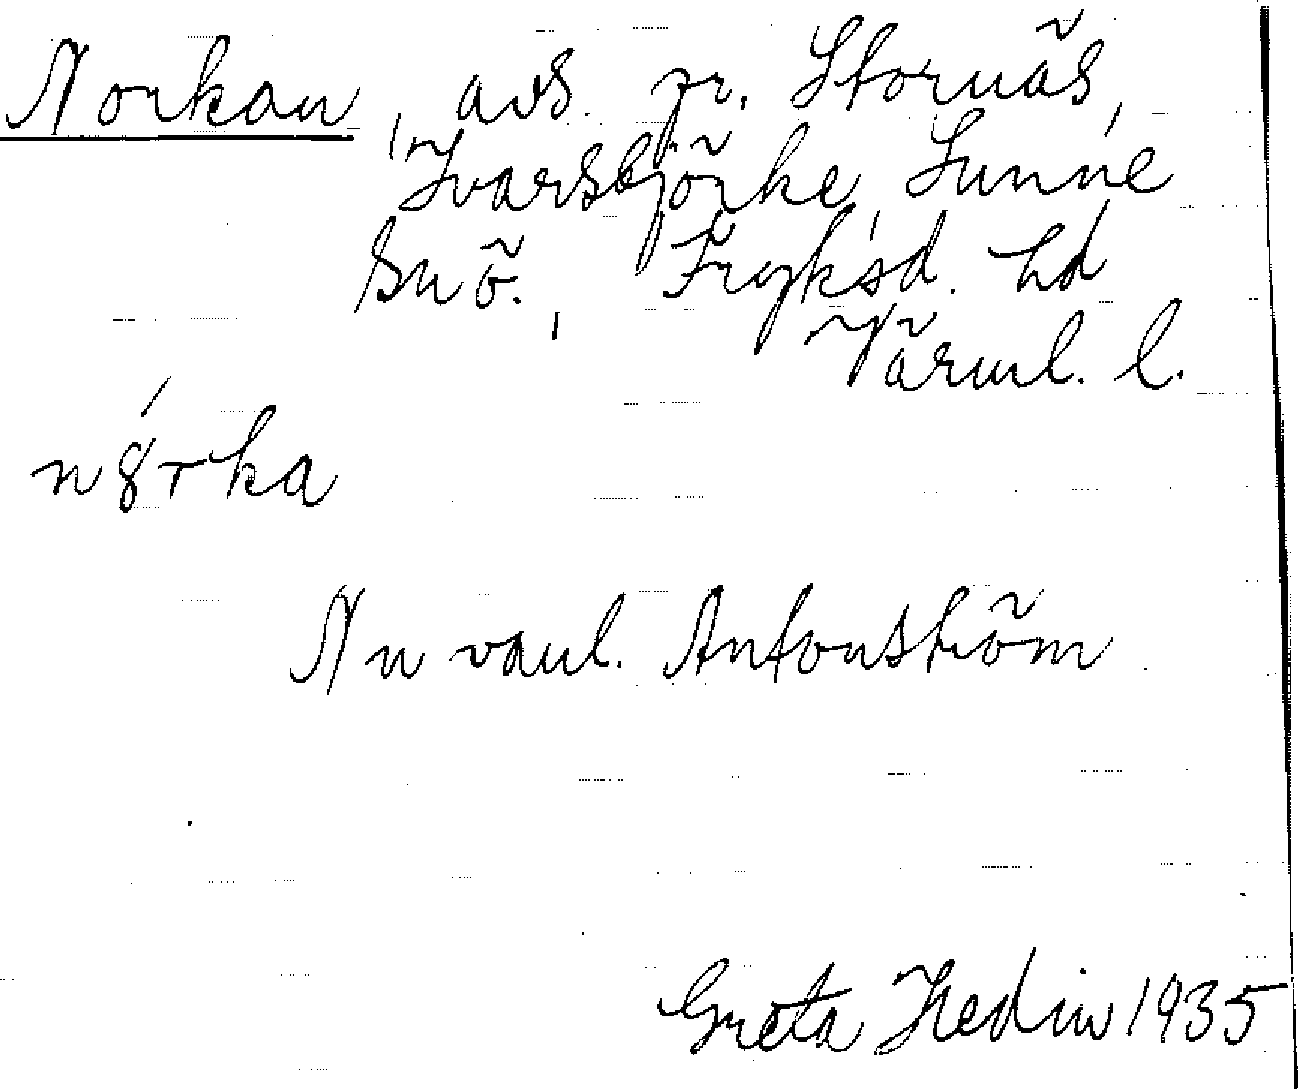 Norkan, avs. pr. Stornäs,
Ivarsbjörke, Sunne
snö., Fryksd. hd
Värml. l.
Nu vanl. Antonström
Greta Hedin 1935